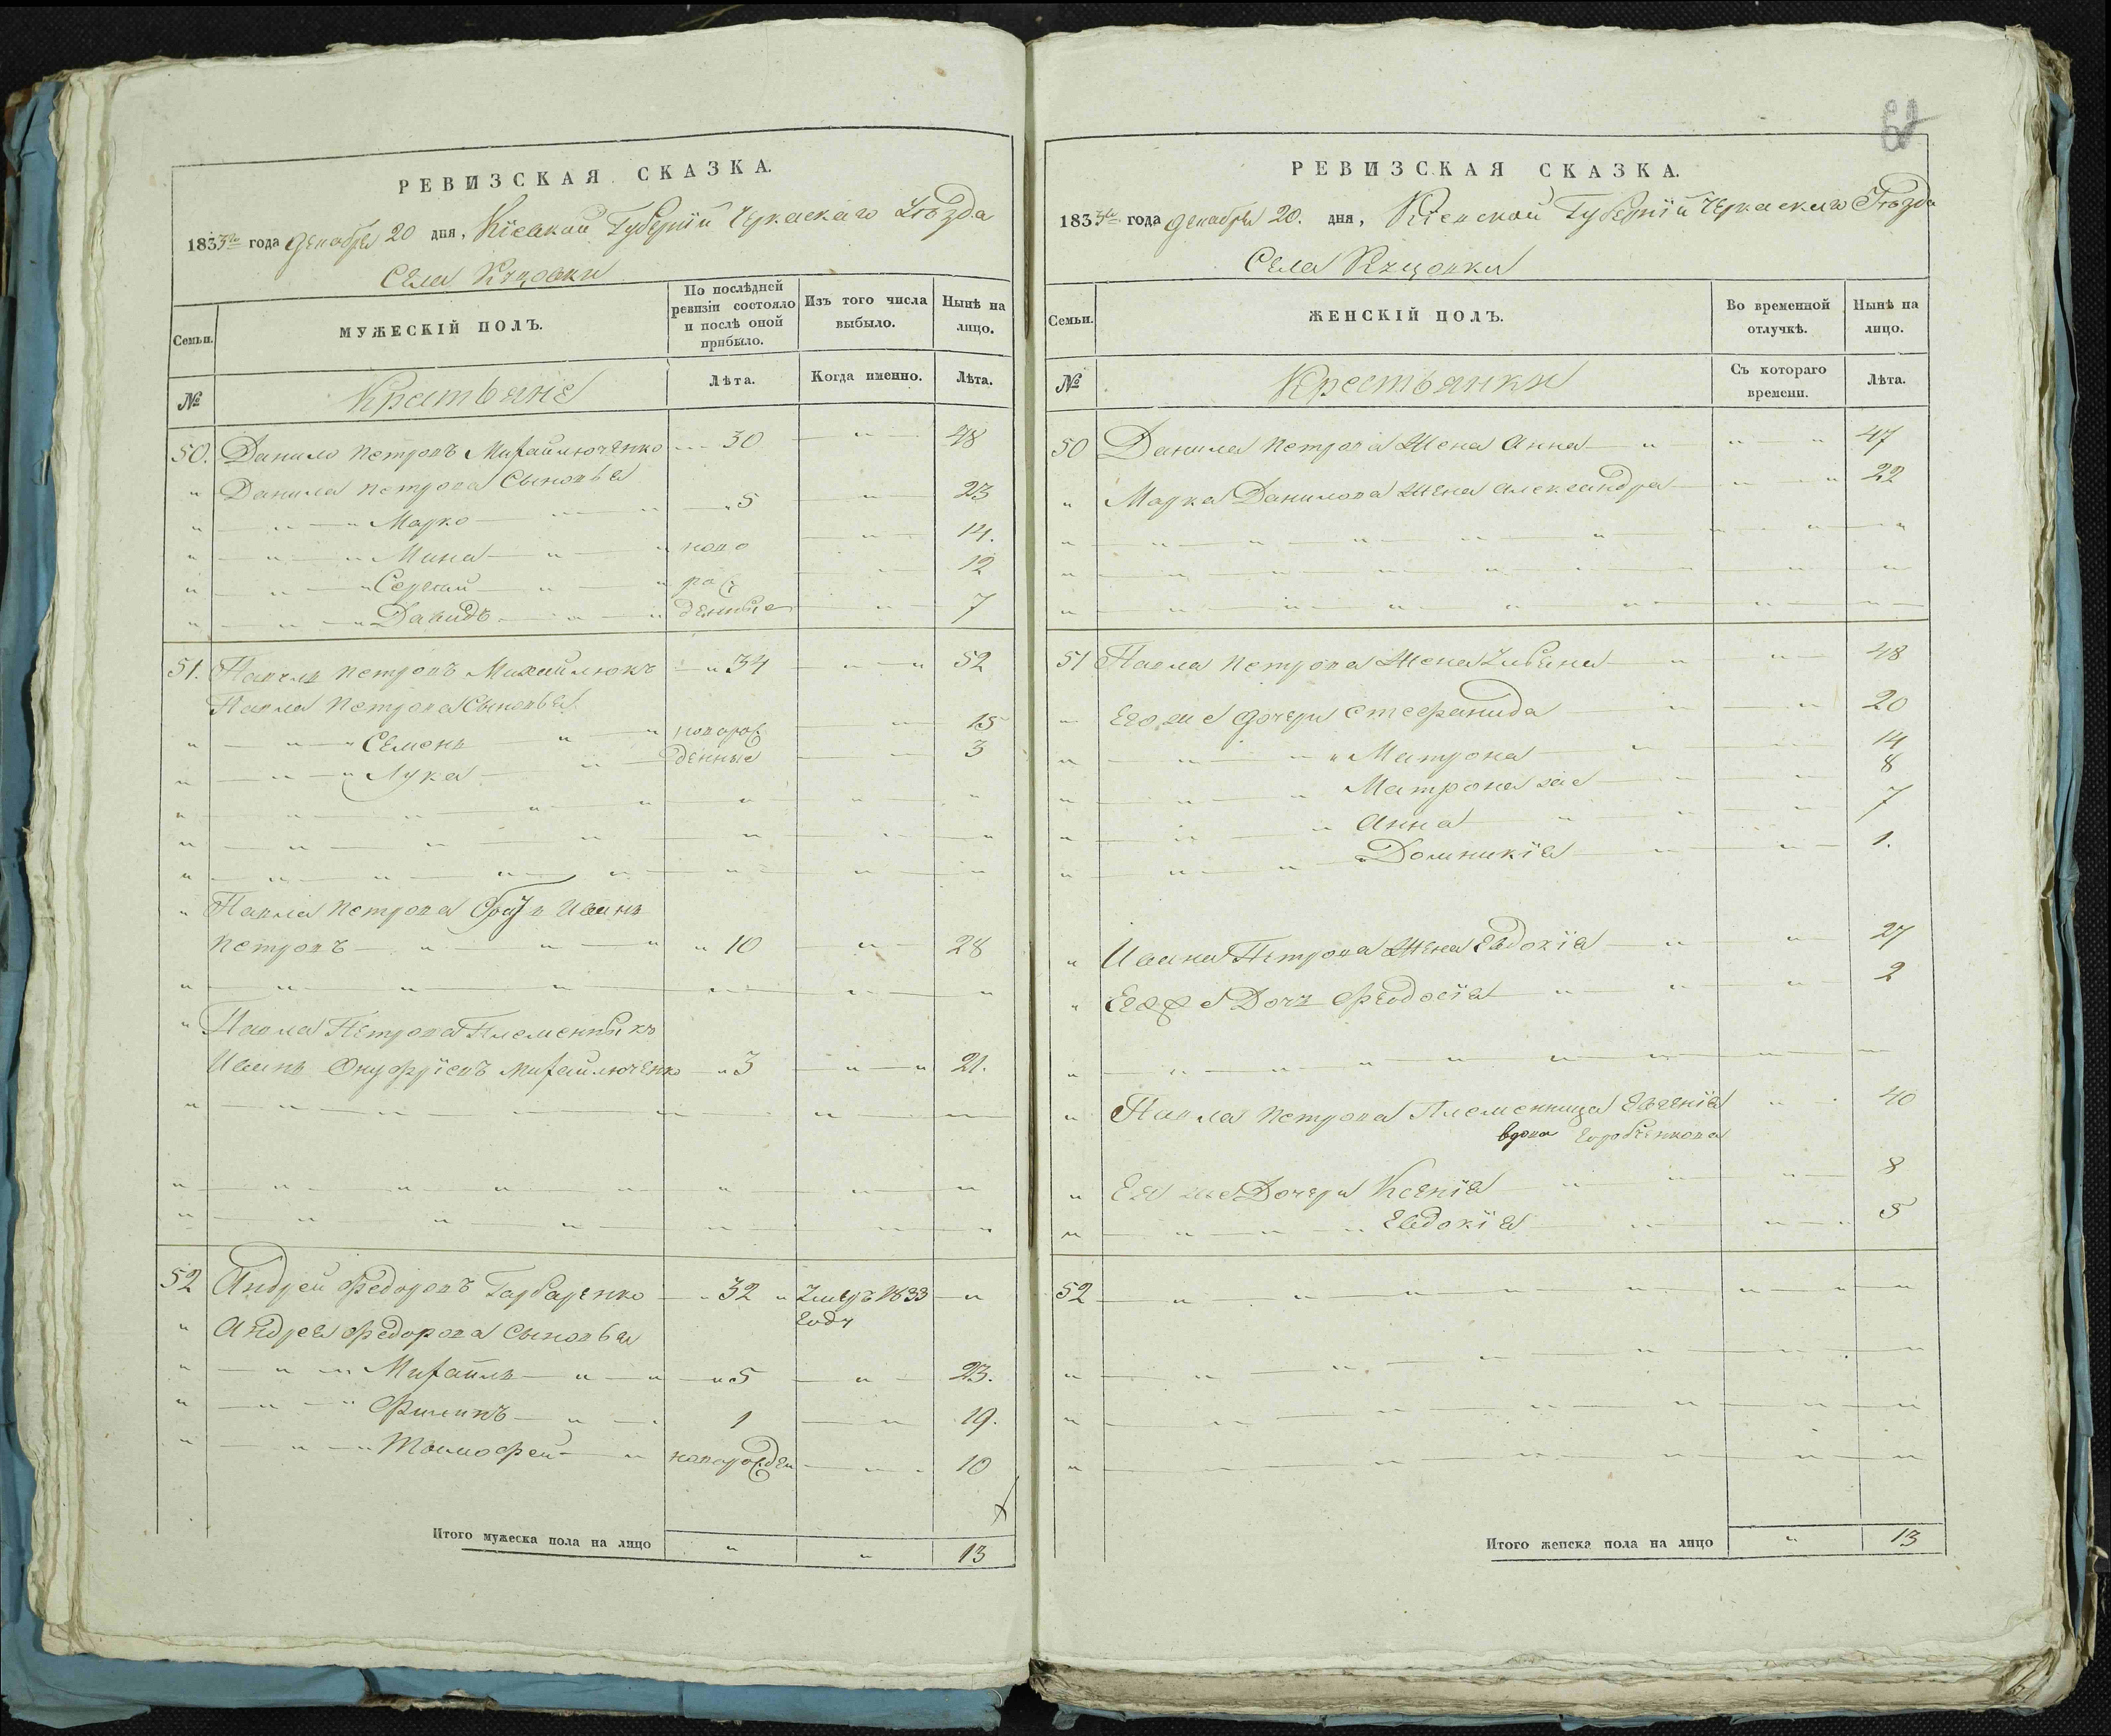 РЕВИЗСКАЯ СКАЗКА.
183 года Декабря 20 дня, Кіевской Губерніи Черкаскаго Уѣзда
Села
Семьи.
МУЖЕСКІЙ ПОЛЪ.
По послѣдней ревизіи состояло и послѣ оной прибыло.
Изъ того числа выбыло.
Нынѣ на лицо.
№
Крестьяне
Лѣта.
Когда именно.
Лѣта.
50. Данило Петровъ Михайлюченко 30 48
Данила Петрова Сыновья
Марко 5 23
Мина ново 14.
Сергий рож 12
Давидъ денные 7
51. Павелъ Петровъ Михайлюкъ 34 52
Павла Петрова Сыновья
Семенъ новорож 15
Лука денные 3
Павла Петрова братъ Иванъ
Петровъ 10 28
Павла Петрова Племенныкъ
Иванъ Онуфріевъ Михайлюченко 3 21.
52 Андрей Федоровъ Гарбаренко 32 Умеръ 1833
году
Андрея Федорова Сыновья
Михаилъ 5 23.
1 19.
Тимофей новорожден 10
Итого мужеска пола на лицо 13
РЕВИЗСКАЯ СКАЗКА.
183 года Декабря 20. дня, Кіевской Губерніи Черкаскаго Уѣзда
Села
Семьи.
ЖЕНСКІЙ ПОЛЪ.
Во временной отлучкѣ.
Нынѣ на лицо.
№
Крестьянки
Съ котораго времени.
Лѣта.
50 Данила Петрова Жена Анна 47
Марка Данилова Жена Александра 22
51 Павла Петрова Жена Ульяна 48
Его же дочери Стефанида 20
Матрона 14
Матрона 8
Анна 7
Домникія 1.
Ивана Петрова Жена Евдокія 27
Его же Дочь Феодосія 2
Павла Петрова Племенница Евгенія 40
вдова
Ея же Дочери Ксенія 8
Евдокія 5
52
Итого женска пола на лицо 13